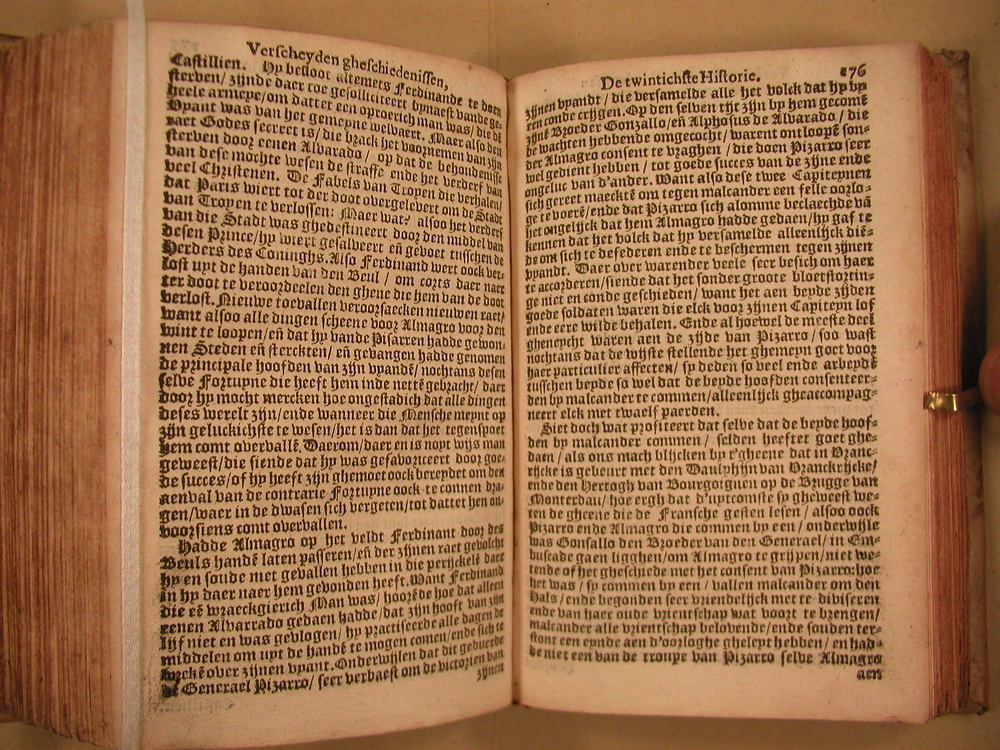 Verscheyden gheschiedenissen,
Castillien. Hy besloot altemets Ferdinande te doen
sterven/ zijnde daer toe gesolliciteert bynaest vande ge-
heele armeye/om datter een oproerich man was/ die de
Vyant was van het gemeyne welvaert. Maer also den
raet Godes secreet is/ die brack het voornemen van zijn
sterven door eenen Alvarado/ op dat de behoudenisse
van dese mochte wesen de straffe ende het verderf van
veel Christenen. De Fabels van Troyen die verhalen/
dat Paris wiert tot der doot overgelevert om de Stadt
van Troyen te verlossen: Maer wat? alsoo het verderf
van die Stadt was ghedestineert door den middel van
desen Prince/hy wiert gesalveert eñ gevoet tusschen de
Herders des Coninghs. Also Ferdinand wert oock ver-
lost uyt de handen van den Beul/ om corts daer naer
ter doot te veroordeelen den ghene die hem van de doot
verlost. Nieuwe toevallen veroorsaecken nieuwen raet/
want alsoo alle dingen scheene voor Almagro voor den
wint te loopen/eñ dat hy vande Pisarren hadde gewon-
nen Steden eñ sterckten/ eñ gevangen hadde genomen
de principale hoofden van zijn vpandē/ nochtans desen
selve Fortuyne die heeft hem inde nettē gebracht/ daer
door hy mocht mercken hoe ongestadich dat alle dingen
deses werelt zijn/ende wanneer die Mensche meynt op
zijn geluckichste te wesen/het is dan dat het tegenspoet
hem comt overvallē. Daerom/daer en is noyt wijs man
geweest/die siende dat hy was gefavoriceert door goe-
de succes/of hy heeft zijn ghemoet oock bereydet om den
aenval van de contrarie Fortuyne oock te connen dra-
gen/waer in de dwasen sich vergeten/tot dattet hen on-
voorsiens comt overvallen.
Hadde Almagro op het veldt Ferdinant door des
Beuls handē laten passeren/eñ der zijnen raet gevolcht
hy en soude niet gevallen hebben in die perijckelē daer
in hy daer naer hem gevonden heeft. Want Ferdinand
die eē wraeckgierich Man was/ hoorēde hoe dat alleen
eenen Alvarrado gedaen hadde/dat zijn hooft van zijn
lijf niet en was gevlogen/ hy practiseerde alle dagen de
middelen om uyt de handē te mogen comen/ende sich te
wrekē over zijnen vyant. Onderwijlen dat dit gebeurde
de Generael Pizarro/ seer verbaest om de victorien van
zijnen
De twintichste Historie. 176
zijnen vyandt/ die versamelde alle het volck dat hy by
een conde crijgen. Op den selven tijt zijn by hem gecomē
zijnē Broeder Gonzallo/eñ Alphosus de Alvarado/ die
de wachten hebbende omgecocht/ warent ontloopē son-
der Almagro consent te vraghen/ die doen Pizarro seer
wel gedient hebben/ tot goede succes van de zijne ende
ongeluc van d'ander. Want also dese twee Capiteynen
sich gereet maecktē om tegen malcander een felle oorlo-
ge te voerē/ende dat Pizarro sich alomme beclaechde vā
het ongelijck dat hem Almagro hadde gedaen/hy gaf te
kennen dat het volck dat hy versamelde alleenlijck diē-
de om sich te defederen ende te beschermen tegen zijnen
vyandt. Daer over warender veele seer besich om haer
te accorderen/siende dat het sonder groote bloetstortin-
ge niet en conde geschieden/ want het aen beyde zijden
goede soldaten waren die elck voor zijnen Capiteyn lof
ende eere wilde behalen. Ende al hoewel de meeste deel
gheneycht waren aen de zijde van Pizarro/ soo wast
nochtans dat de wijste stellende het ghemeyn goet voor
haer particulier affecten/ sy deden so veel ende arbeydē
tusschen beyde so wel dat de beyde hoofden consenteer-
den by malcander te commen/alleenlijck gheaccompag-
neert elck met twaelf paerden.
Siet doch wat profiteert dat selve dat de beyde hoof-
den by malcander commen/ selden heeftet goet ghe-
daen/ als ons mach blijcken by t'gheene dat in Vranc-
rijcke is gebeurt met den Daulphijn van Vranckrijcke/
ende den Hertogh van Bourgoignen op de Brugge van
Monterdau/ hoe ergh dat d'uytcomste sy gheweest we-
ten de gheene die de Fransche gesten lesen/ alsoo oock
Pizarro ende Almagro die commen by een/ onderwijle
was Gonsallo den Broeder van den Generael/ in Em-
buscade gaen ligghen/om Almagro te grijpen/niet we-
tende of het gheschiede met het consent van Pizarro:hoe
het was/ sy commen by een/ vallen malcander om den
Hals/ ende begonden seer vriendelijck met te diviseren
ende van haer oude vrientschap wat voort te brengen/
malcander alle vrientschap belovende/ende souden ter-
stont een eynde aen d'oorloghe ghelept hebben/ en had-
de niet een van de troupe van Pizarro selve Almagro
aen